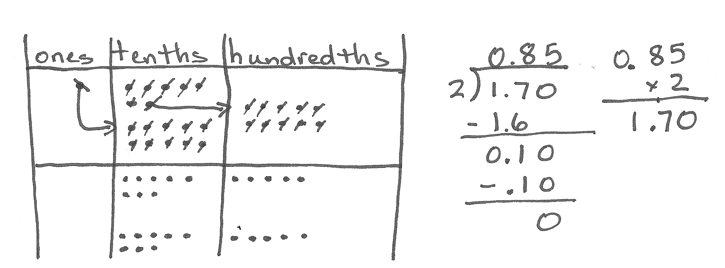 ones tenths hundredths
0.85
2)1.70
-1.6
0.10
-.10
0
0.85
x2
1.70